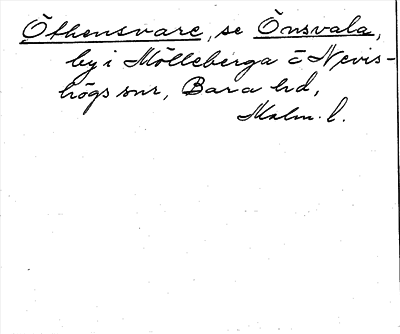 Öthensvare, se Önsvala,
by i Mölleberga o Nevis-
högs snr, Bara hd,
Malm. l.